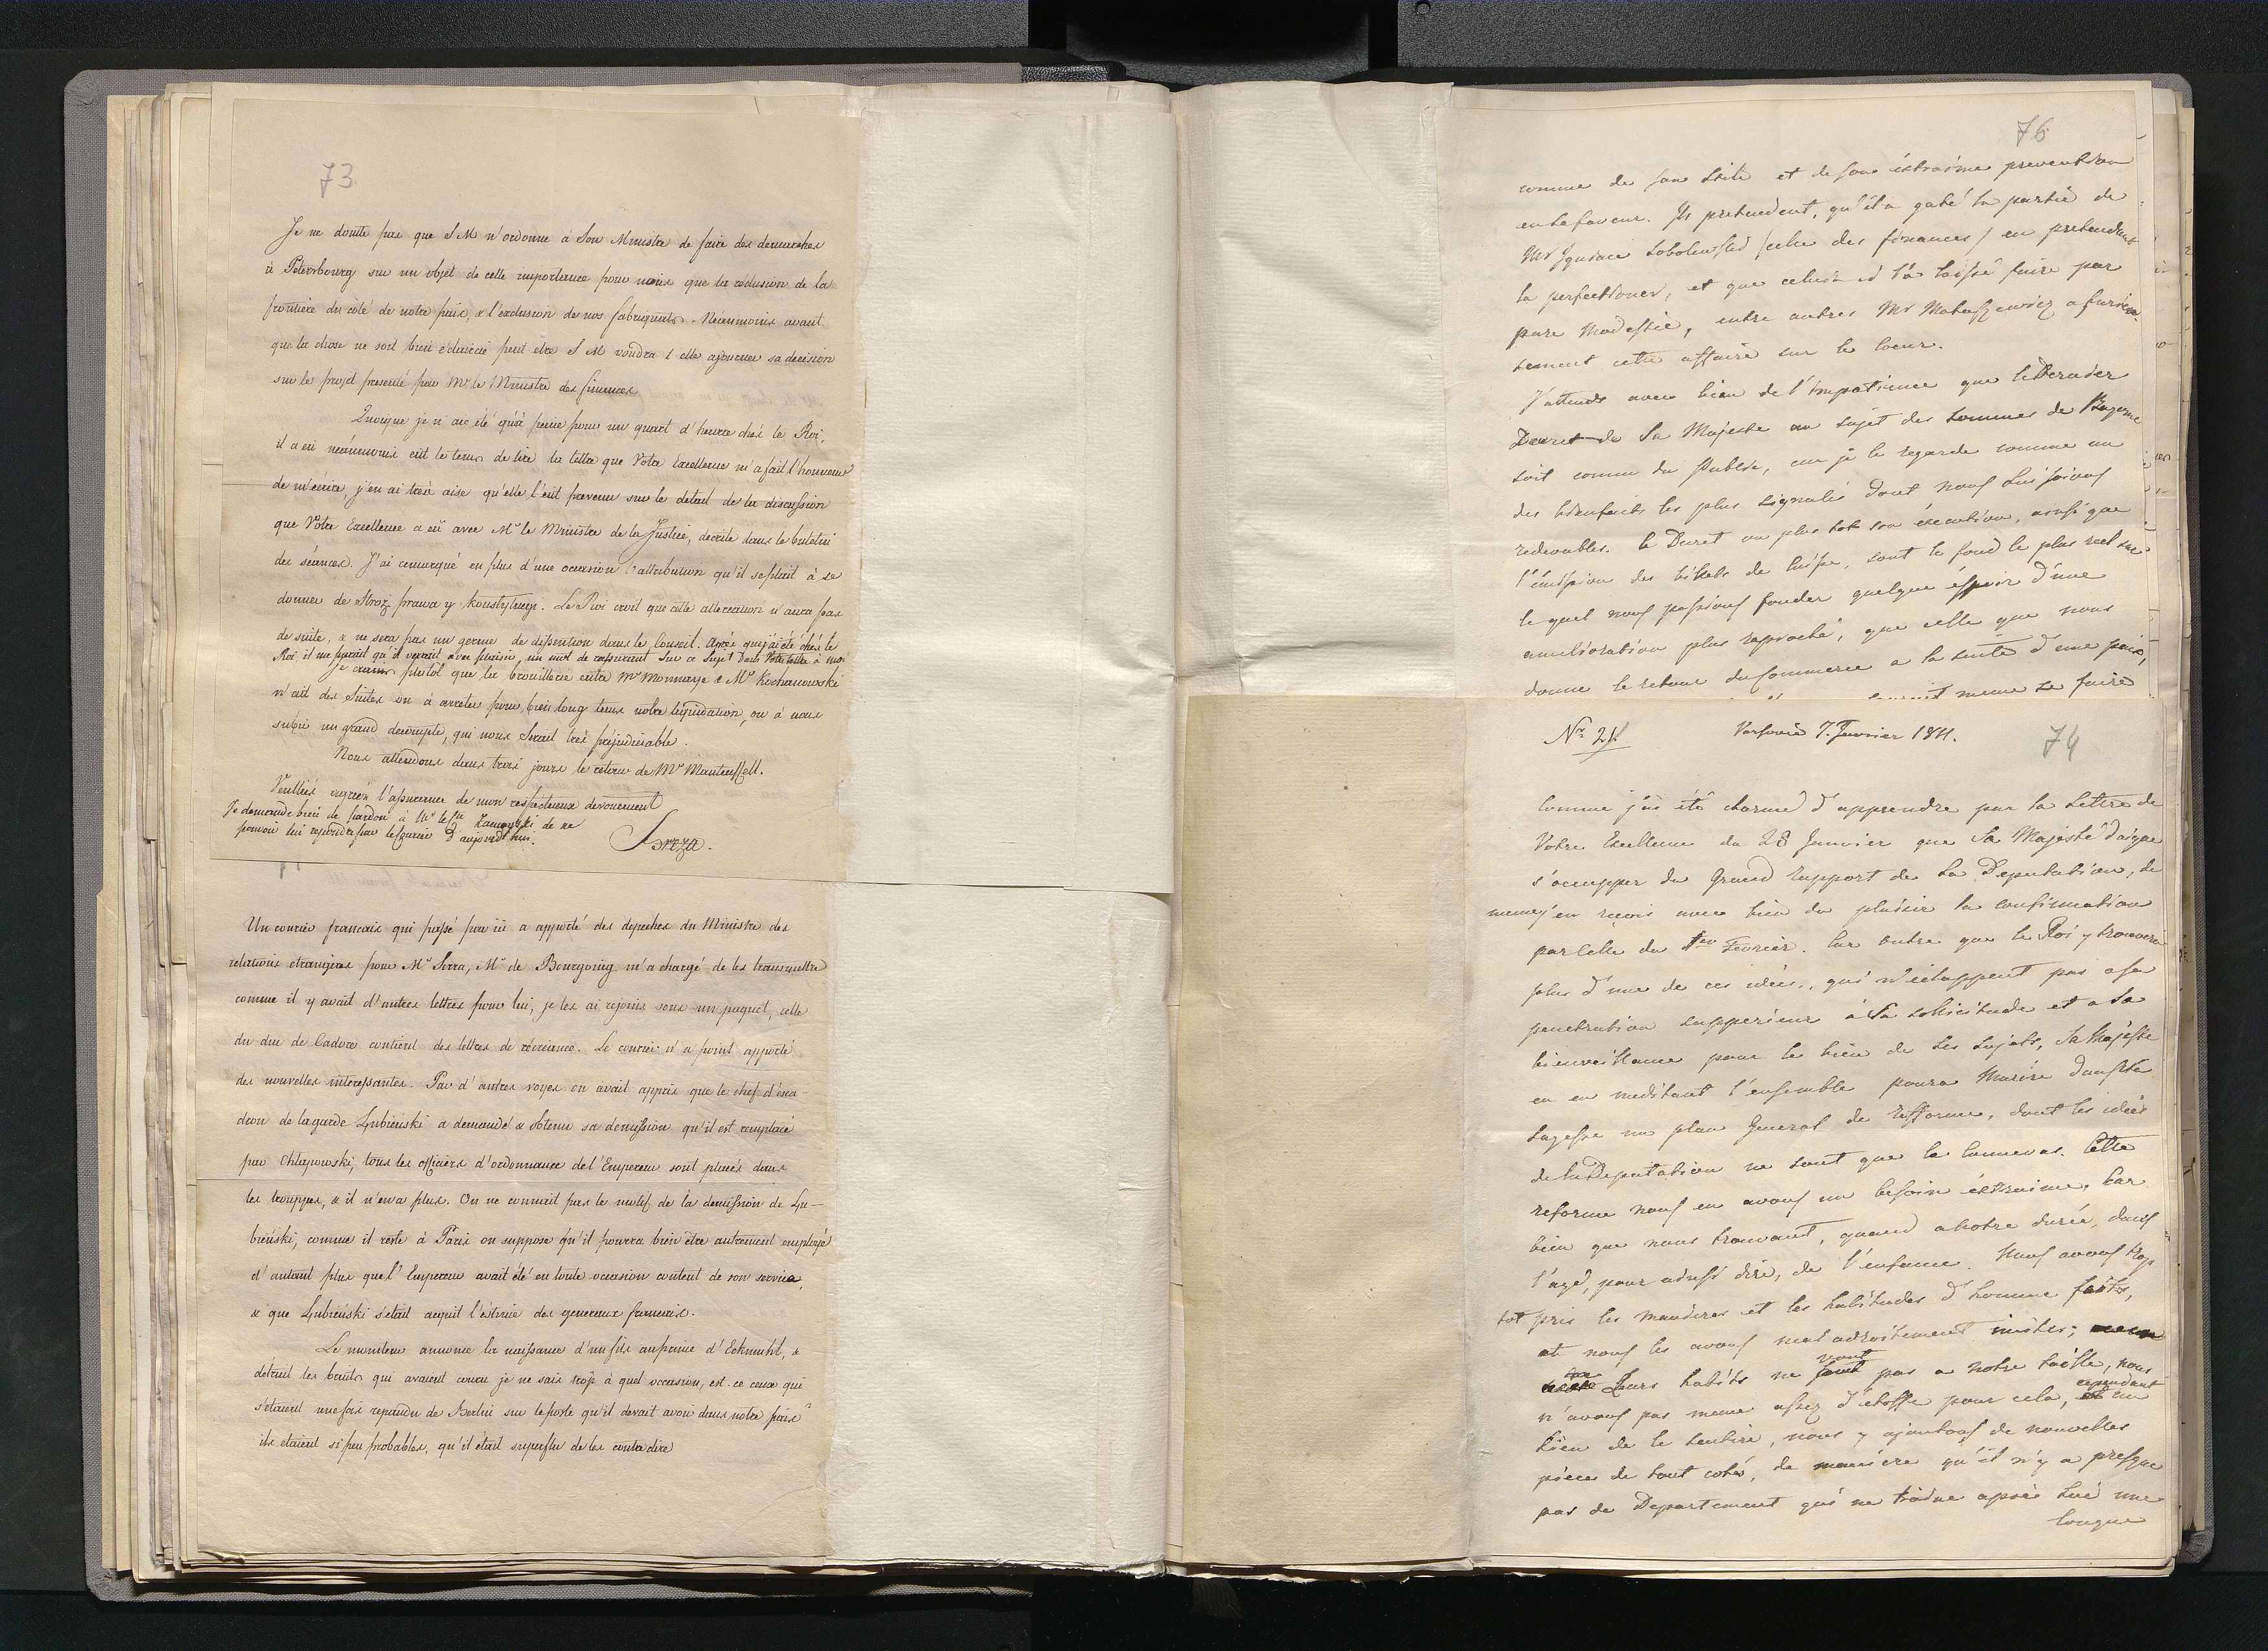 73
Je ne doute pas que S M n'ordonne a Son Ministre de faire des demarches
à Petersbourg sur un objet de cette importance pour nous que la réclusion de la
frontière du coté de notre païs, & l'exclusion de nos fabriquats. Néanmoins avant
que la chose ne soit bien éclaircie peut etre S M voudra t elle ajourner sa decision
sur le projet presenté par Mr le Ministre des finances
Quoique je n'aie été qu'à peine pour un quart d'heure chés le Roi,
il a eü néanmoins eüt le tems de lire la lettre que Votre Excellence m'a fait l'honneur
de m'écrire, j'en ai très aise qu'elle l'eut prevenu sur le detail de la discussion
que Votre Excellence a eü avec Mr le Ministre de la Justice, decrite dans le buletin
des séances. J'ai remarqué en plus d'une occasion l'attribution qu'il se plait à se
donner de Stroż prawa y konstytucyi. Le Roi croit que cette altercation n'aura pas
de suite, & ne sera pas un germe de dissention dans le Conseil. Après que j'ai été chés le
Roi il me parait qu'il verrait avec plaisir, un mot de rassurant sur ce sujet dans Votre lettre à moi
je crains plutot que la brouillerie entre Mr Monnaye & Mr Kochanowski
n'ait des suites ou à arreter pour bien long tems notre liquidation, ou à nous
subir un grand decompte, qui nous serait très préjudiciable.
Nous attendons dans trois jours le retour de Mr Manteuffell.
Veuillés agréer l'assurance de mon respectueux devouement
Je demande bien de pardon à Mr le Cte Zamoyski de ne
pouvoir lui repondre par le Courier d'aujourd'hui.
Breza.
Un courier francais qui passé par ici a apporté des depeches du Ministre des
relations etrangères pour Mr Serra, Mr de Bourgoing m'a chargé de les transmettre
comme il y avait d'autres lettres pour lui, je les ai rejoins sous un paquet, celle
du duc de Cadore contient des lettres de récréance. Le courier n'a point apporté
des nouvelles interessantes. Par d'autres voyes on avait appris que le chef d'esca-
dron de la garde Łubieński a demandé & obtenu sa demission qu'il est remplacé
par Chlapowski, tous les officiers d'ordonnance de l'Empereur sont placés dans
les trouppes, & il n'en a plus. On ne connait pas le motif de la demission de Łu-
bieński, comme il reste à Paris on suppose qu'il pourra bien être autrement employé
d'autant plus que l'Empereur avait été en toute occasion content de son service,
& que Łubieński s'etait acquit l'estime des generaux francais.
Le moniteur annonce la naissance d'un fils au prince d'Eckmuhl, &
détruit les bruits qui avaient couru je ne sais trop à quel occasion, est-ce ceux qui
s'etaient une fois repandu de Berlin sur le poste qu'il devait avoir dans notre païs?
ils etaient si peu probables, qu'il était superflu de les contredire
76
comme de son Stile et de son éxtraime prevention
en sa faveur. Ils pretendent, qu'il a gaté la partie de
Mr Ignace Sobolewski /celle des finances/ en pretendant
la perfectioner, et que celui ci l'a laissé faire par
pure modestie, entre autres Mr Matuszewicz a furieu-
sement cette affaire sur le Coeur.
J'attends avec bien de l'impatience que le Dernier
Decret de Sa Majesté au sujet des Sommes de Bayonne
soit connu du Public, car je le regarde comme un
des bienfaits les plus signalés dont nous lui soions
redevables. Ce Decret ou plus tot son éxecution, ainsi que
l'émission des billets de Caisse, sont le fond le plus réel sur
le quel nous puissions fonder quelque éspoir d'une
amelioration plus raproché, que celle que nous
donne le retour du Commerce a la suite d'une paix,
meme se faire
Nro 21.
Varsovie 7. Fevrier 1811.
74
Comme j'ai été charmé d'apprendre par la Lettre de
Votre Excellence du 28 Janvier que Sa Majesté daigne
s'occupper du Grand Rapport de la Deputation, de
meme j'en reçois avec bien du plaisir la confirmation
par celle du 1er Fevrier. Car outre que le Roi y trouvera
plus d'une de ces idées, qui n'échappent pas a sa
penetration supperieur à Sa sollicitude et a Sa
bienveillance pour le bien de Ses Sujets, Sa Majesté
en en meditant l'ensemble poura Murir dans Sa
sagesse un plan General de Refforme, dont les idées
de la Deputation ne sont que le Cannevas. Cette
reforme nous en avons un besoin éxtraime, Car
bien que nous trouvant, quand a notre durée, dans
l'age, pour ainsi dire, de l'enfance. Nous avons trop
tot pris les manieres et les habitudes d'homme faits,
et nous les avons mal adroitement imités;
Leurs habits ne vont pas a notre taille, nous
n'avons pas meme assez d'étoffe pour cela, cependant en
bien de le sentir, nous y ajoutons de nouvelles
pièces de tout cotés, de maniére qu'il n'y a presque
pas de Departement qui ne traine après Lui une
longue